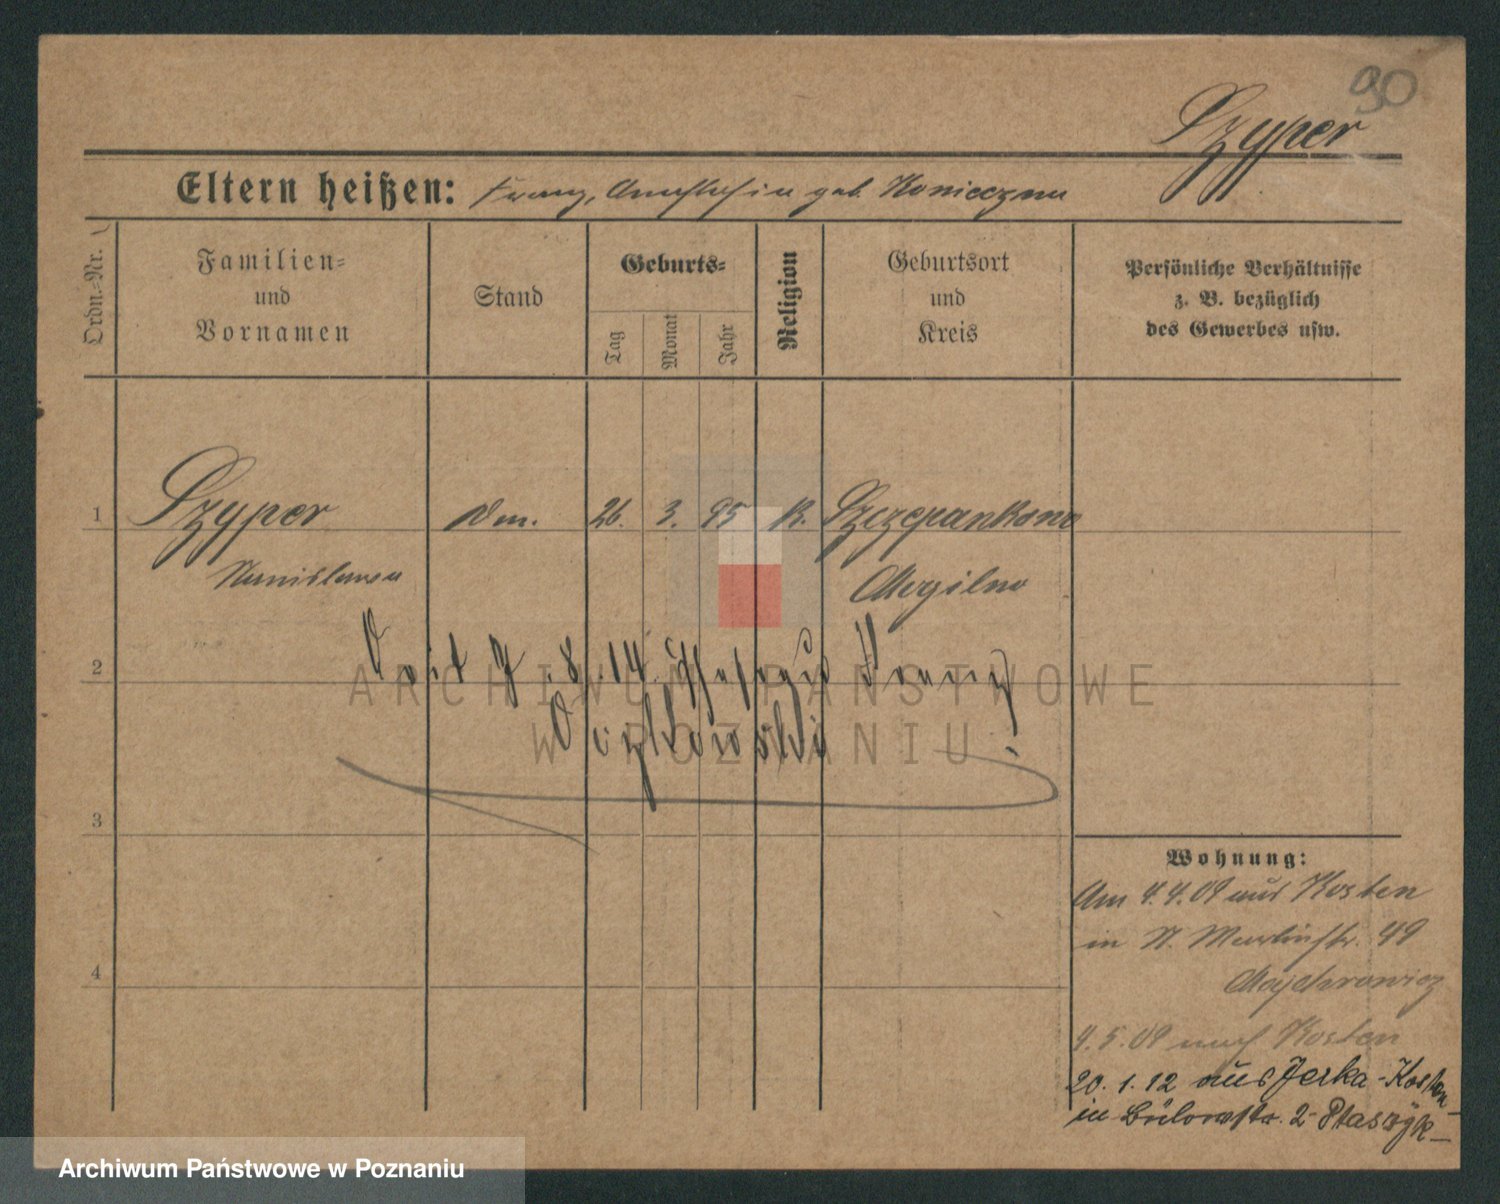 90
Szyper
Eltern heißen: Franz, geb. Konieczna
Ordn.-Nr.
Familien=
und
Vornamen
Stand
Geburts=
Tag
Monat
Jahr
Religion
Geburtsort
und
Kreis
Persönliche Verhältnisse
z. B. bezüglich
des Gewerbes usw.
1 Szyper 26. 3. 95 K. Szczepankowo
Stanislawa Mogilno
2 Seit 7.8.14. Ehefrau Franz
3
4
Wohnung:
Am 4.4.09 aus Kosten
in St. Martinstr. 49
Majchrowicz
4.5.09 nach Kosten
20.1.12 aus Jerka-Kosten
in Bülowstr. 2 Ptaszyk
ARCHIWUM PAŃSTWOWE
W POZNANIU
Archiwum Państwowe w Poznaniu